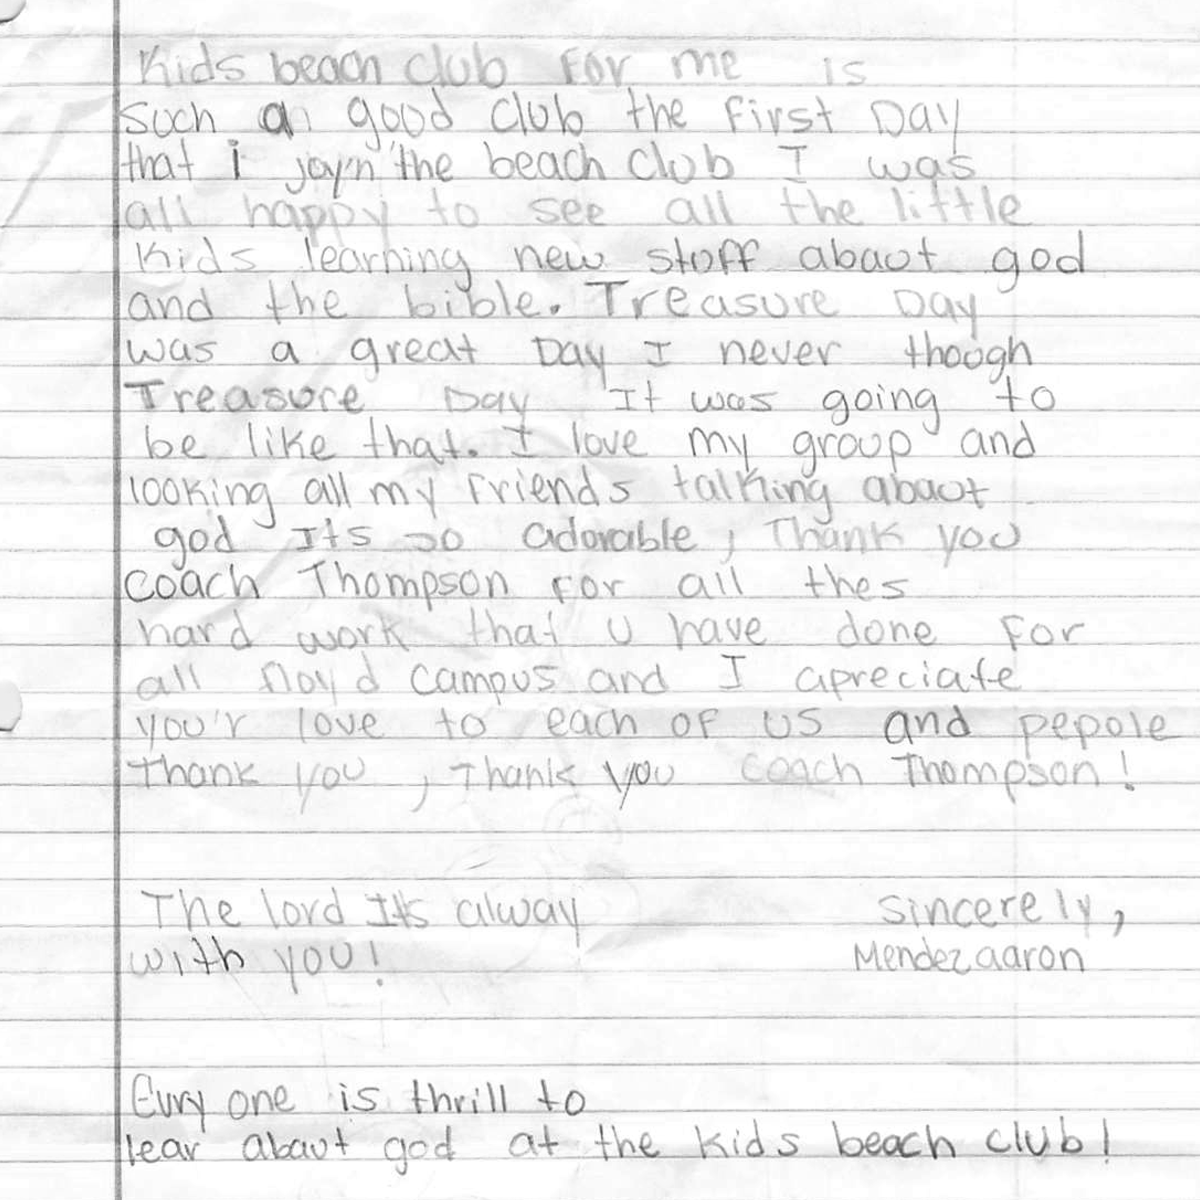 Kids beach club for me is
Such a good club the first Day
that i joyn the beach club I was
all happy to see all the little
Kids learning new stoff abaot god
and the bible. Treasure Day
was a great Day I never though
Treasore Day It was going to
be like that. I love my group and
looking all my friends talking abaot
god Its so adorable, Thank you
Coach Thompson for all thes
hard work that u have done for
all floyd campus and I apreciate
you'r love to each of us and pepole
thank you, thank you coach Thompson!
The lord Its alway
with you!
sincerely,
Mendez aaron
Evry one is thrill to
lear abaot god at the kids beach club!